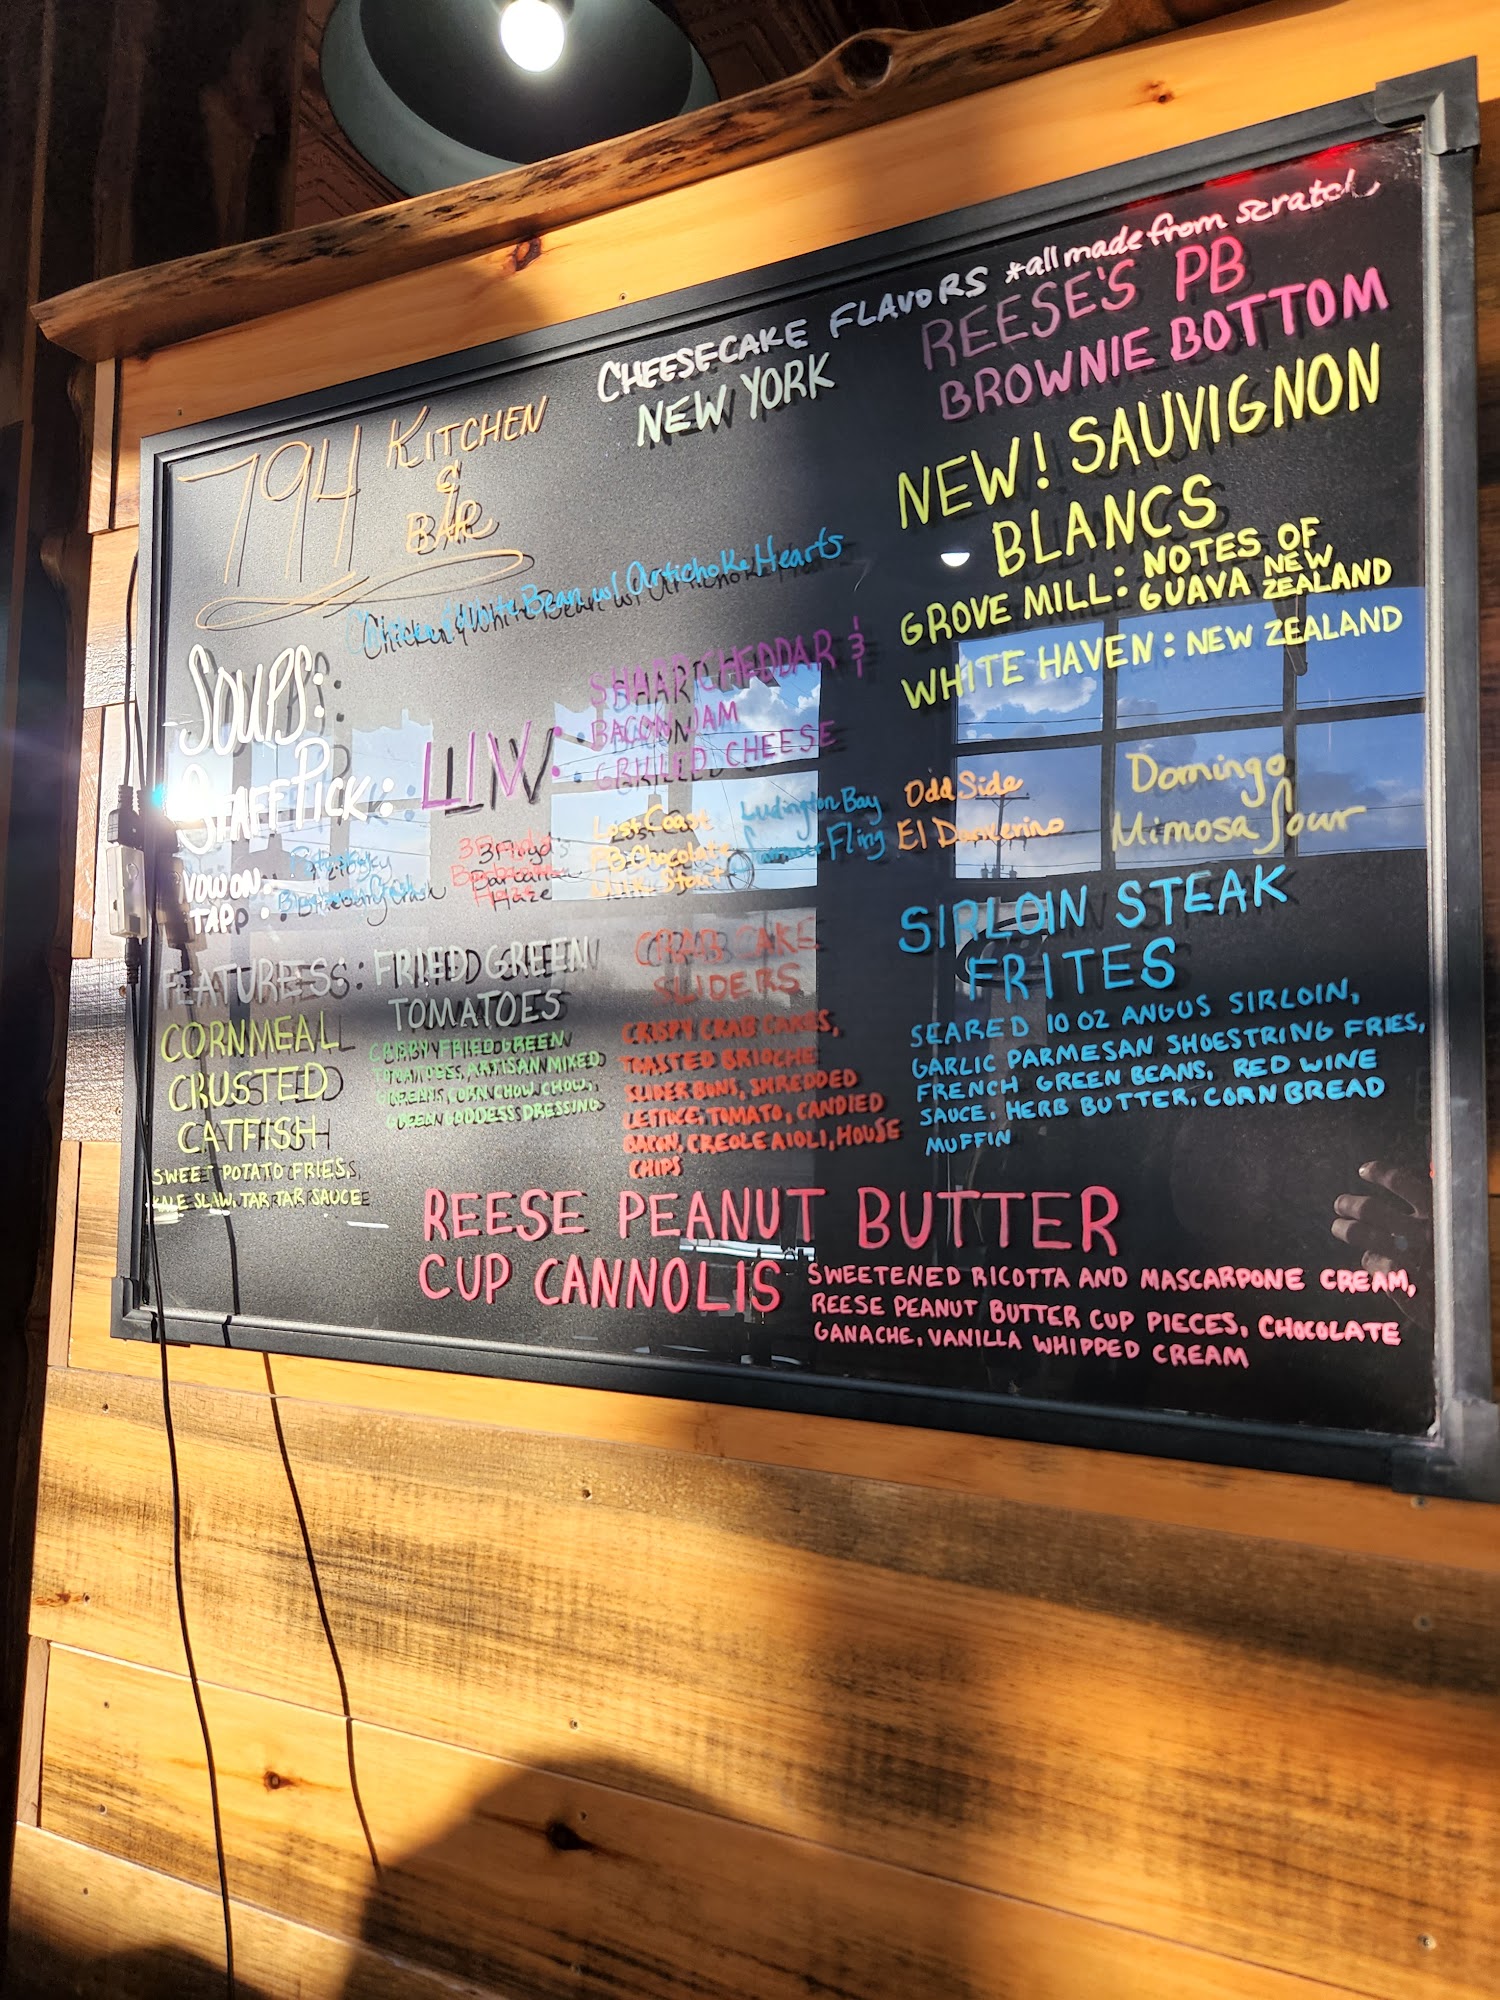 794 KITCHEN
&
BAR
CHEESECAKE FLAVORS *all made from scratch
NEW YORK
REESE'S PB
BROWNIE BOTTOM
NEW! SAUVIGNON
BLANCS
GROVE MILL: NOTES OF
GUAVA NEW
ZEALAND
WHITE HAVEN: NEW ZEALAND
SOUPS: Chicken & White Bean w/ Artichoke Hearts
STAFF PICK: LIV: SHARP CHEDDAR &
BACON JAM
GRILLED CHEESE
NOW ON
TAP:
Petoskey
Blueberry Crush
3 Floyd's
Barbarian
Haze
Lost Coast
PB Chocolate
Milk Stout
Ludington Bay
Summer Fling
Odd Side
El Dankerino
Domingo
Mimosa Sour
FEATURES:
CORNMEAL
CRUSTED
CATFISH
SWEET POTATO FRIES,
KALE SLAW, TAR TAR SAUCE
FRIED GREEN
TOMATOES
CRISPY FRIED GREEN
TOMATOES, ARTISAN MIXED
GREENS, CORN CHOW CHOW,
GREEN GODDESS DRESSING
CRAB CAKE
SLIDERS
CRISPY CRAB CAKES,
TOASTED BRIOCHE
SLIDER BUNS, SHREDDED
LETTUCE, TOMATO, CANDIED
BACON, CREOLE AIOLI, HOUSE
CHIPS
SIRLOIN STEAK
FRITES
SEARED 10 OZ ANGUS SIRLOIN,
GARLIC PARMESAN SHOESTRING FRIES,
FRENCH GREEN BEANS, RED WINE
SAUCE, HERB BUTTER, CORN BREAD
MUFFIN
REESE PEANUT BUTTER
CUP CANNOLIS
SWEETENED RICOTTA AND MASCARPONE CREAM,
REESE PEANUT BUTTER CUP PIECES, CHOCOLATE
GANACHE, VANILLA WHIPPED CREAM